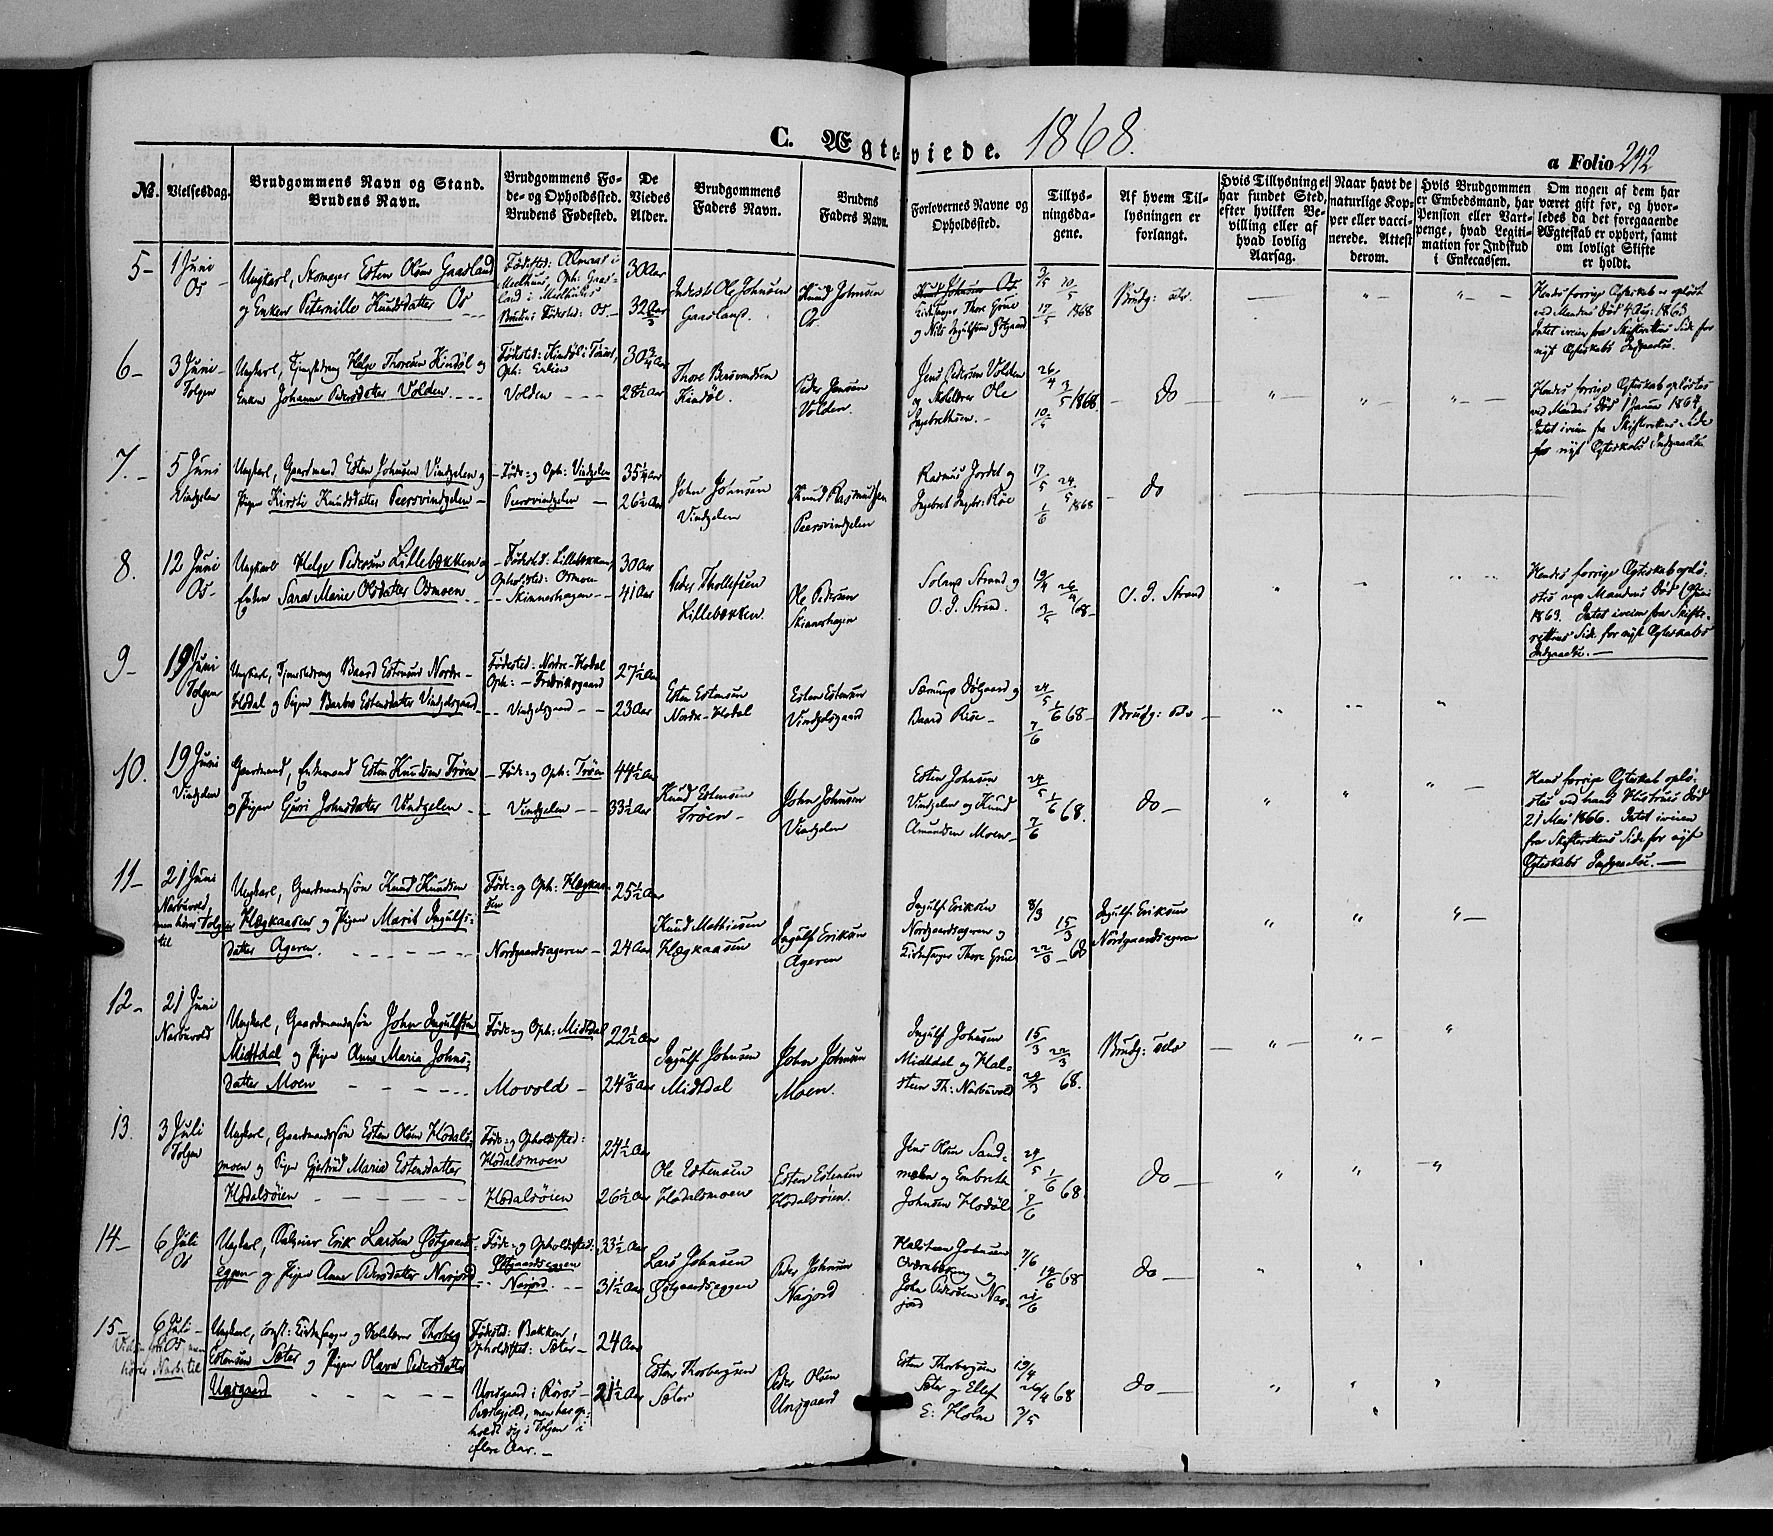 C. Ægteviede. 1868.
a Folio 242
No.
Vielsesdag.
Brudgommens Navn og Stand.
Brudens Navn.
Brudgommens Fø-
de- og Opholdssted.
Brudens Fødested.
De
Viedes
Alder.
Brudgommens
Faders Navn.
Brudens
Faders Navn.
Forlovernes Navne og
Opholdssted.
Tillys-
ningsda-
gene.
Af hvem Til-
lysningen er
forlangt.
Hvis Tillysning ei
har fundet Sted,
efter hvilken Be-
villing eller af
hvad lovlig
Aarsag.
Naar havt de
naturlige Kop-
per eller vacci-
nerede. Attest
derom.
Hvis Brudgommen
er Embedsmand, har
Pension eller Vart-
penge, hvad Legiti-
mation for Indskud
i Enkecassen.
Om nogen af dem har
været gift før, og hvor-
ledes da det foregaaende
Ægteskab er ophørt, samt
om lovligt Skifte
er holdt.
5-
1 Juni
Os
Ungkarl, Esten Olsen Gaasland
og Enken Pernille Knudsdatter Os
Land i Melhus
Brudens Fødested: Os
30 Aar
Inderst Ole Johnsen
Gaasland.
Knud Johnsen
Os.
Knud Johnsen Os
Kirkesanger Thore Grue
og Nils Ingulfsen
3/5 10/5
17/5 1868
Brudg: selv.
Hendes forrige Ægteskab er opløst
ved Mandens Død 4 Aug: 1863
Intet iveien fra Skifterettens Side for
nyt Ægteskabs Indgaaelse.
6-
3 Juni
Tolgen
Ungkarl, Tjenestedreng Helge Thoresen Kindøl og
Enken Johanne Pedersdatter Volden
Fødested: Kindøl i
Oph:
Volden
30 3/4 Aar
28 1/2 Aar
Thore Bersvendsen
Kindøl.
Peder Jensen
Volden.
Jens Pedersen Volden
og Skolelærer Ole
Ingebrethsen.
26/4 3/5 1868
10/5
do
Hendes forrige Ægteskab opløstes
ved Mandens Død 1 Januar 1864
Intet iveien fra Skifterettens Side
for nyt Ægteskabs Indgaaelse
7.
5 Juni
Vingelen
Ungkarl, Gaardmand Esten Johnsen Vingelen og
Pigen Kirsti Knudsdatter Peersvingelen
Føde- og Oph: Vingelen
Peersvingelen
35 1/4 Aar
26 1/2 Aar
John Johnsen
Vingelen
Knud Rasmussen
Peersvingelen
Rasmus Jordet og
Ingebret Ingbr: Røe
17/5 24/5
1/6 1868
do
8.
12 Juni
Os
Ungkarl Helge Pedersen Lillebækken og
Enken Sara Marie Olsdatter Osmoen
Fødested: Lillebækken,
Opholdsted: Osmoen
Skinnerhagen
30 Aar
41 Aar
Peder Thollefsen
Lillebækken.
Ole Pedersen
Skinnerhagen
Solmup Strand og
O. J. Strand.
19/4 26/4
3/5 68
O. J. Strand
Hendes forrige Ægteskab oplø-
stes ved Mandens Død
1863. Intet iveien fra Skifte-
rettens Side for nyt Ægteskabs
Indgaaelse.
9-
19 Juni
Tolgen
Ungkarl, Tjenestedreng Baard Estensen Nordre-
Hodal og Pigen Barbro Estensdatter Vingelsgaard
Fødested: Nordre-Hodal
Oph: Fredriksgaard
Vingelsgaard
27 1/2 Aar
23 Aar
Esten Estensen
Nordre-Hodal
Esten Estensen
Vingelsgaard
Baard Rise
24/5 1/6 68
7/6
Brudg: selv
10.
19 Juni
Vingelen
Gaardmand, Enkemand Esten Knudsen Trøen
og Pigen Guri Johnsdatter Vingelen
Føde- og Oph: Trøen
Vingelen
44 1/2 Aar
33 1/2 Aar
Knud Estensen
Trøen
John Johnsen
Vingelen
Esten Johnsen
Vingelen og Knud
Amundsen Moen
24/5 1/6 68.
7/6
do
Hans forrige Ægteskab oplø-
stes ved hans Hustrues Død
21 Mai 1866. Intet iveien
fra Skifterettens Side for nyt
Ægteskabs Indgaaelse.
11-
21 Juni
Narbuvold,
men hører Tolgen
til
Ungkarl, Gaardmandssøn Knud Knudsen
Klægkaasen og Pigen Marit Ingulfs-
datter Ageren.
Føde- og Oph: Klægkaa-
sen
Nordgaardsageren
25 1/2 Aar
24 Aar
Knud Mathiesen
Klægkaasen
Ingulf Eriksen
Ageren
Ingulf Eriksen
Nordgaardsageren og
Kirkesanger Thore Grue
8/3 15/3
22/3 68
Ingulf Eriksen
Nordgaardsageren
12-
21 Juni
Narbuvold
Ungkarl, Gaardmandssøn John Ingulfsen
Midtdal og Pigen Anne Maria Johns-
datter Moen
Føde- og Oph: Midtdal
Movold
22 1/2 Aar
24 2/3 Aar
Ingulf Johnsen
Midtdal
John Johnsen
Moen.
Ingulf Johnsen
Midtdal og Hal-
steen Th: Narbuvold
15/3 22/3
29/3 68.
Brudg: selv
13.
3 Juli
Tolgen
Ungkarl, Gaardmandssøn Esten Olsen Hodals-
moen og Pigen Gjertrud Maria Estensdatter
Hodalsöien
Føde- og Opholdssted:
Hodalsmoen
Hodalsöien
24 1/2 Aar
26 1/2 Aar
Ole Estensen
Hodalsmoen
Esten Estensen
Hodalsöien.
Jens Olsen Sand-
moen og Embrets
Johnsen Hodøl
24/5 1/6 68.
7/6
do
14-
6 Juli
Os
Ungkarl, Erik Larsen Østgaards-
eggen og Pigen Anne Pedersdatter Narjord
Føde- og Opholdssted:
Østgaardseggen
Narjord
33 1/2 Aar
31 1/2 Aar
Lars Johnsen
Østgaardseggen
Peder Johnsen
Narjord
Halsteen Johnsen
og
John Pedersen Nar-
jord
7/6 14/6 68
21/6
do
15-
6 Juli
Os, men
hører Narb: til
Ungkarl, const: Kirkesanger og Skolelærer Thorberg
Estensen Sæter og Pigen Olava Pedersdatter
Unsgaard
Fødested: Bakken,
Opholdssted: Sæter
Unsgaard i Röros
Præstegjeld, men har op-
holdt sig i Tolgen i
flere Aar.
24 Aar
21 1/2 Aar
Esten Thorbergsen
Sæter
Peder Olsen
Unsgaard
Esten Thorbergsen
Sæter og Ellef
E: Holm
19/4
26/4 68
3/5
do